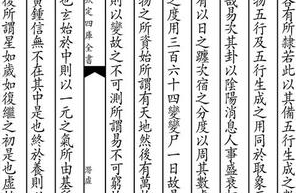 各有所隸若此以其備三
物五行及五行生成之用同於取象
故易次其卦以陰陽消息人事盛衰
有以日之躔次宿之分度以周其數
之度用三百六十四變變尸一日故
物之資始所謂有天地然後有萬
則以變故之不可測所謂易不可窮
欽定四庫全書
潛虛
也玄始於中則以一元之氣所由基
黃鍾信無不在其中是也終於養則
後所謂星如歲如復繼之初是也虛